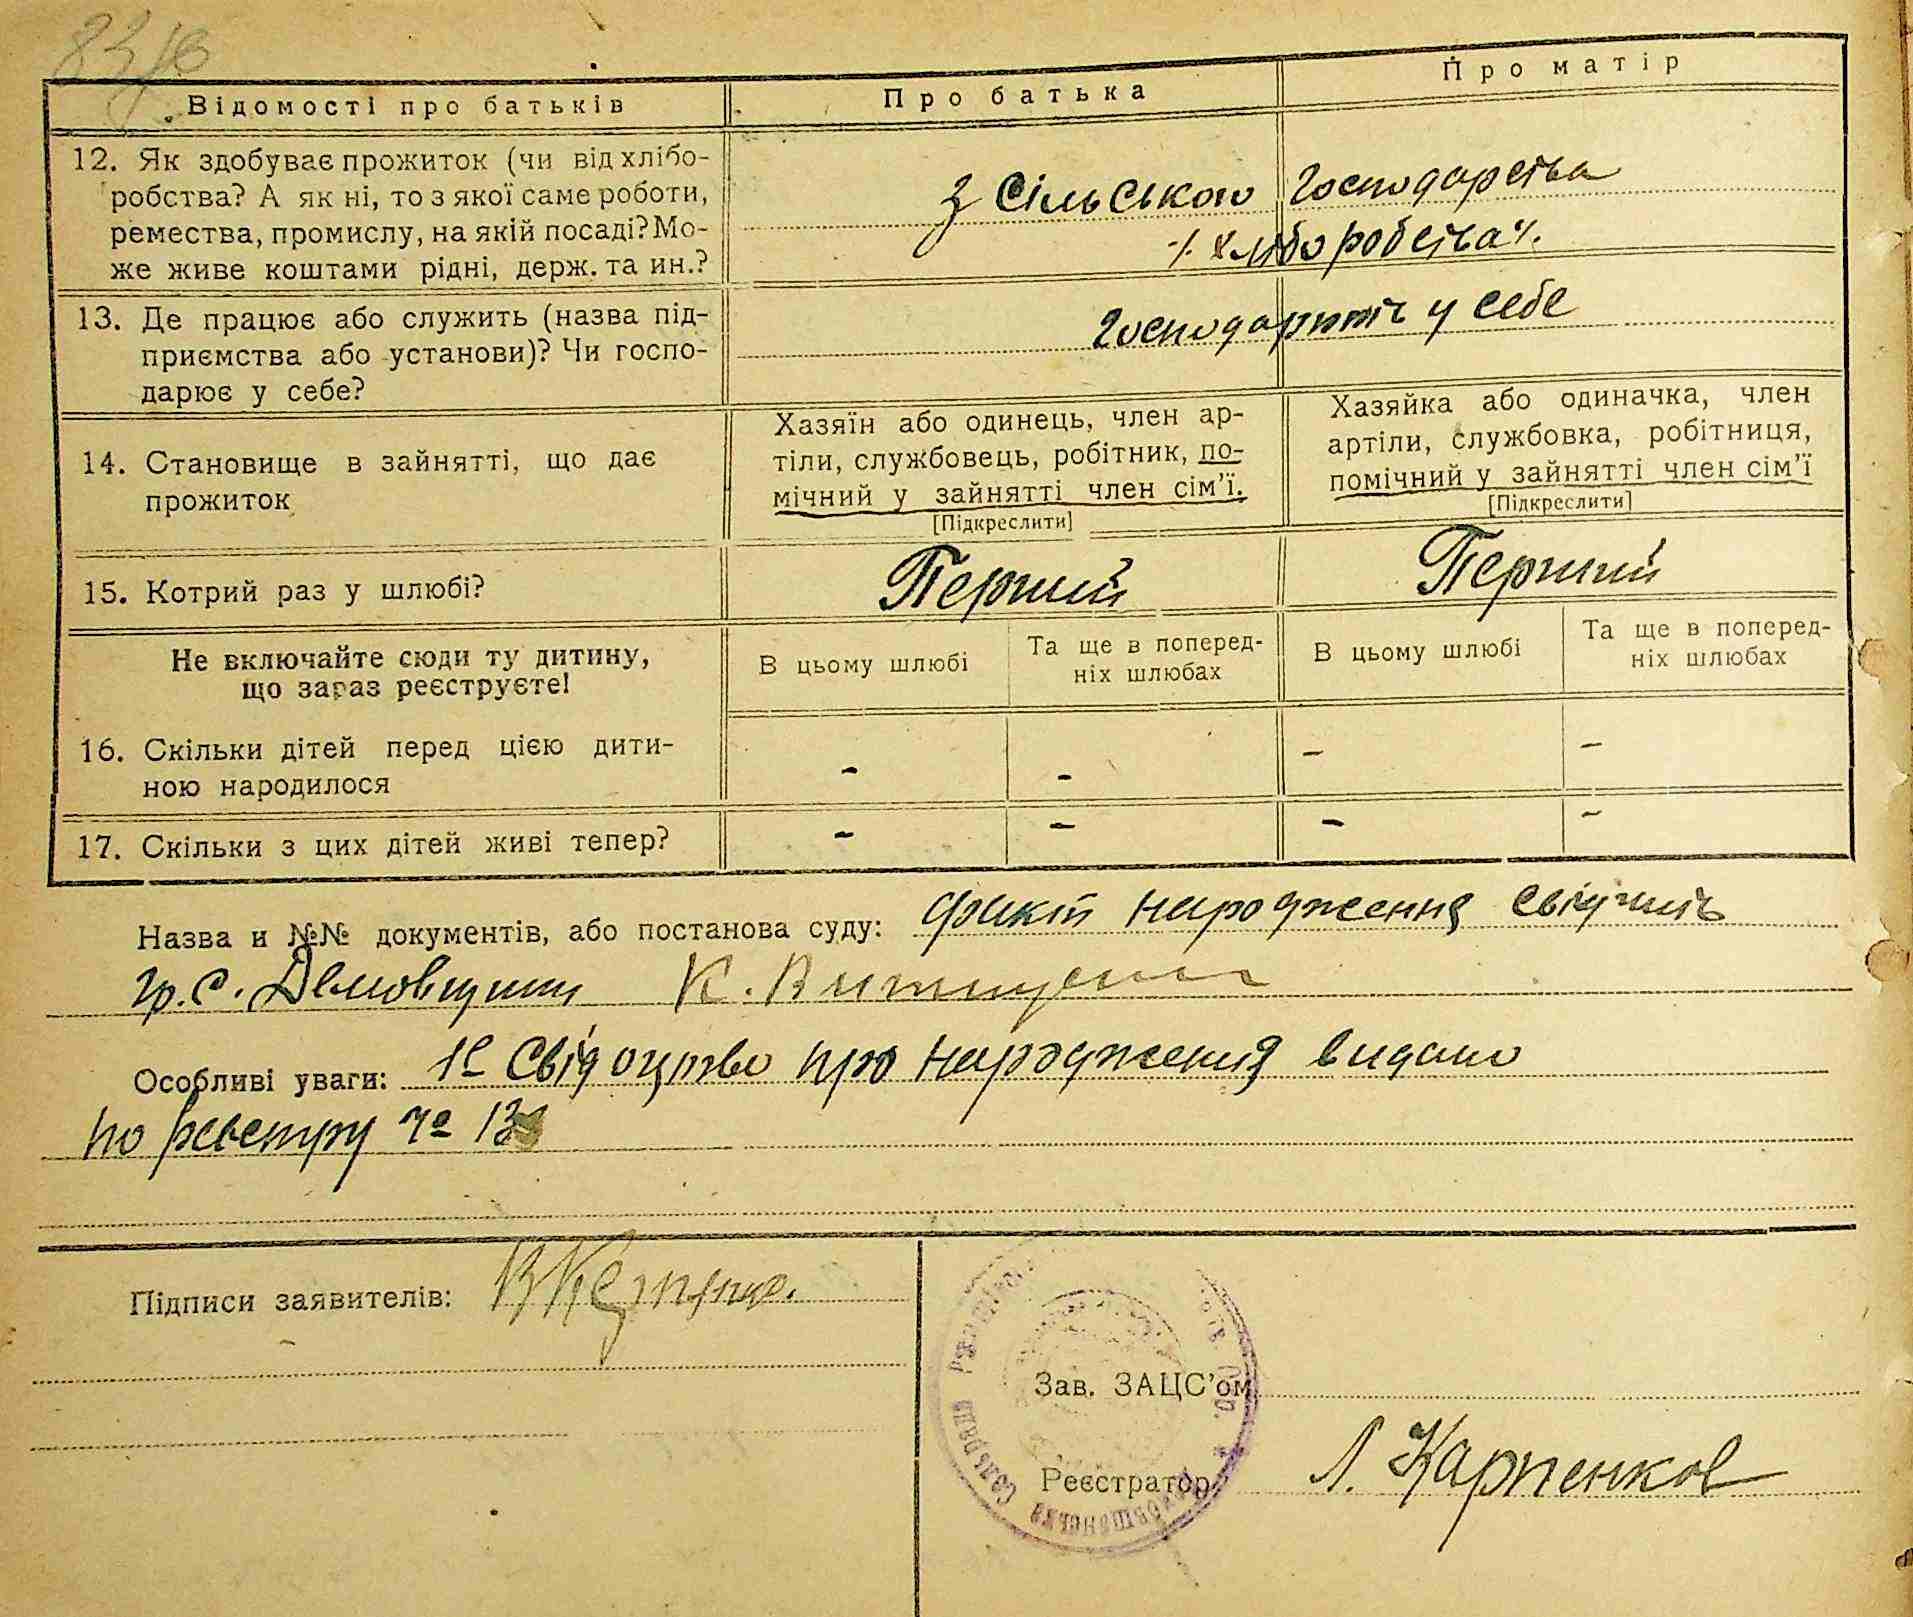 Відомості про батьків
Про батька
Про матір
12. Як здобуває прожиток (чи від хлібо-
робства? А як ні, то з якої саме роботи,
ремества, промислу, на якій посаді? Мо-
же живе коштами рідні, держ. та ин.?
з Сільського Господарства
хліборобства
13. Де працює або служить (назва під-
приємства або установи)? Чи госпо-
дарює у себе?
у себе
14. Становище в зайнятті, що дає
прожиток
Хазяїн або одинець, член ар-
тіли, службовець, робітник, по-
мічний у зайнятті член сім'ї.
[Підкреслити]
Хазяйка або одиначка, член
артіли, службовка, робітниця,
помічний у зайнятті член сім'ї
[Підкреслити]
15. Котрий раз у шлюбі?
Перший
Перший
Не включайте сюди ту дитину,
що зараз реєструєте!
В цьому шлюбі
Та ще в поперед-
ніх шлюбах
В цьому шлюбі
Та ще в поперед-
ніх шлюбах
16. Скільки дітей перед цією дити-
ною народилося
- - - -
17. Скільки з цих дітей живі тепер?
- - - -
Назва и №№ документів, або постанова суду: факт народження свідчить
гр. с. Демовщини К.
Особливі уваги: Свідоцтво про народження видано
по реєстру
Підписи заявителів:
Зав. ЗАЦС'ом
Реєстратор Л. Карпенков